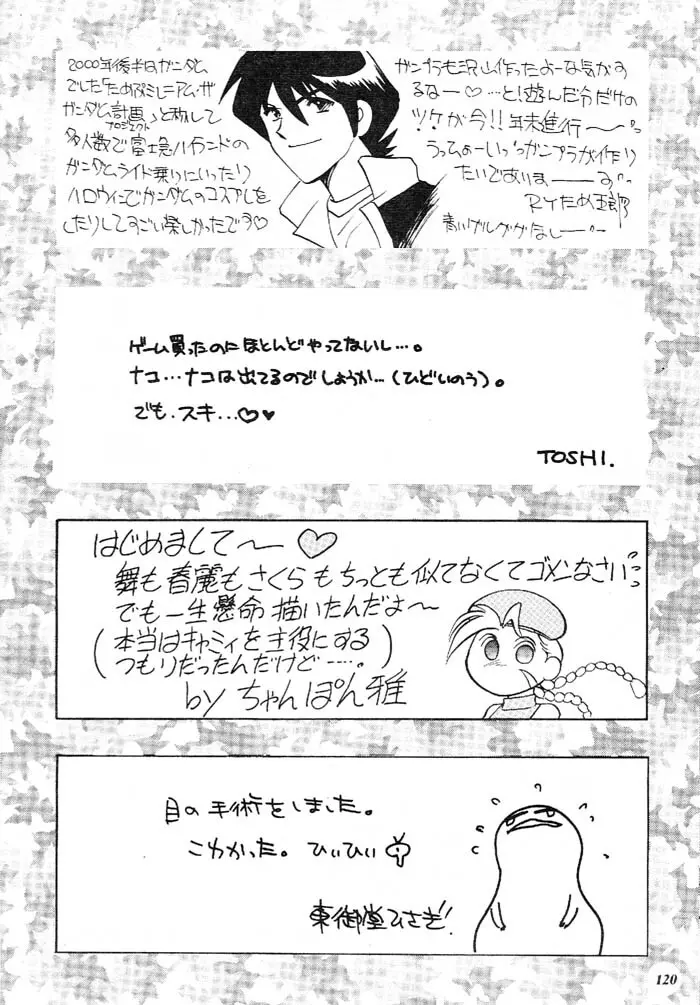 2000年後半はガンダム
でした「ためQミレニアム・ザ
ガンダム計画」と称して
プロジェクト
多人数で富士急ハイランドの
ガンダムライド乗りにいったり
ハロウィンでガンダムのコスプレを
したりしてすごい楽しかったです♡
ガンプラも沢山作ったよーな気がす
るなー♡…と!遊んだ分だけの
ツケが今!!年末進行〜
うっひょーいっガンプラが作り
たいでありまーーす
BYため五郎
青いゲルググなしー
ゲーム買ったのにほとんどやってないし…。
ナコ…ナコは出てるのでしょうか…(ひどいのう)。
でも、スキ…♡♥
TOSHI.
はじめまして〜♡
舞も春麗もさくらもちっとも似てなくてゴメンなさい
でも一生懸命描いたんだよ〜
(本当はキャミィを主役にする
つもりだったんだけど……。)
by ちゃんぽん雅
目の手術をしました。
こわかった。ひぃひぃ
東御堂ひさぎ!
120